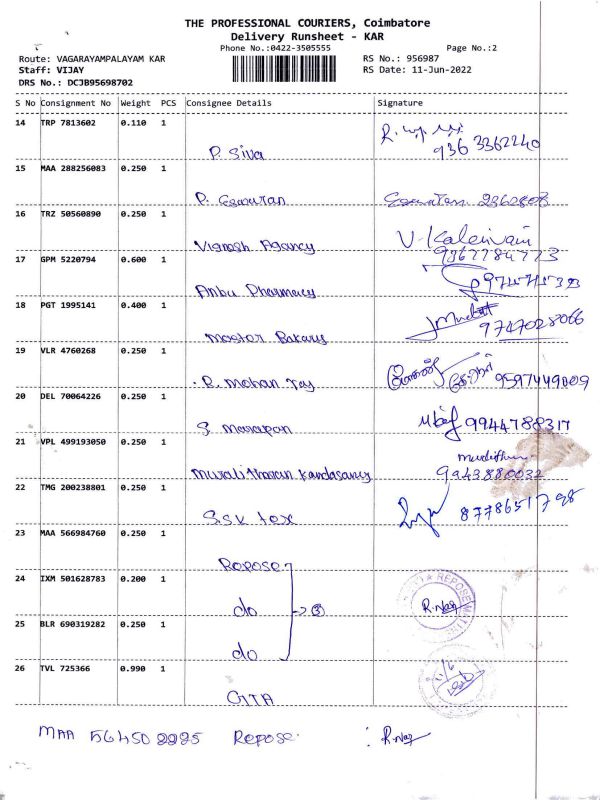 THE PROFESSIONAL COURIERS, Coimbatore
Delivery Runsheet - KAR
Phone No.:0422-3505555 Page No.:2
Route: VAGARAYAMPALAYAM KAR RS No.: 956987
Staff: VIJAY RS Date: 11-Jun-2022
DRS No.: DCJB95698702
S No Consignment No Weight PCS Consignee Details Signature
14 TRP 7813602 0.110 1
P. Siva 936 3362240
15 MAA 288256083 0.250 1
P. Eswaran Eswaran 2362808
16 TRZ 50560890 0.250 1
Vignesh Agancy V. Kaleivani
9367784773
17 GPM 5220794 0.600 1
Anbu Pharmacy
18 PGT 1995141 0.400 1
Master Bakary 9747028066
19 VLR 4760268 0.250 1
R. Mohan Raj 9597449009
20 DEL 70064226 0.250 1
S. Marapan 9944788317
21 VPL 499193050 0.250 1
Murali tharan Kandasamy 9943880032
22 TMG 200238801 0.250 1
S.S.V tex 8778651798
23 MAA 566984760 0.250 1
Repose
24 IXM 501628783 0.200 1
do → ③ R.Naz
25 BLR 690319282 0.250 1
do
26 TVL 725366 0.990 1
GITA
MAA 564502225 Repose. R.Naz